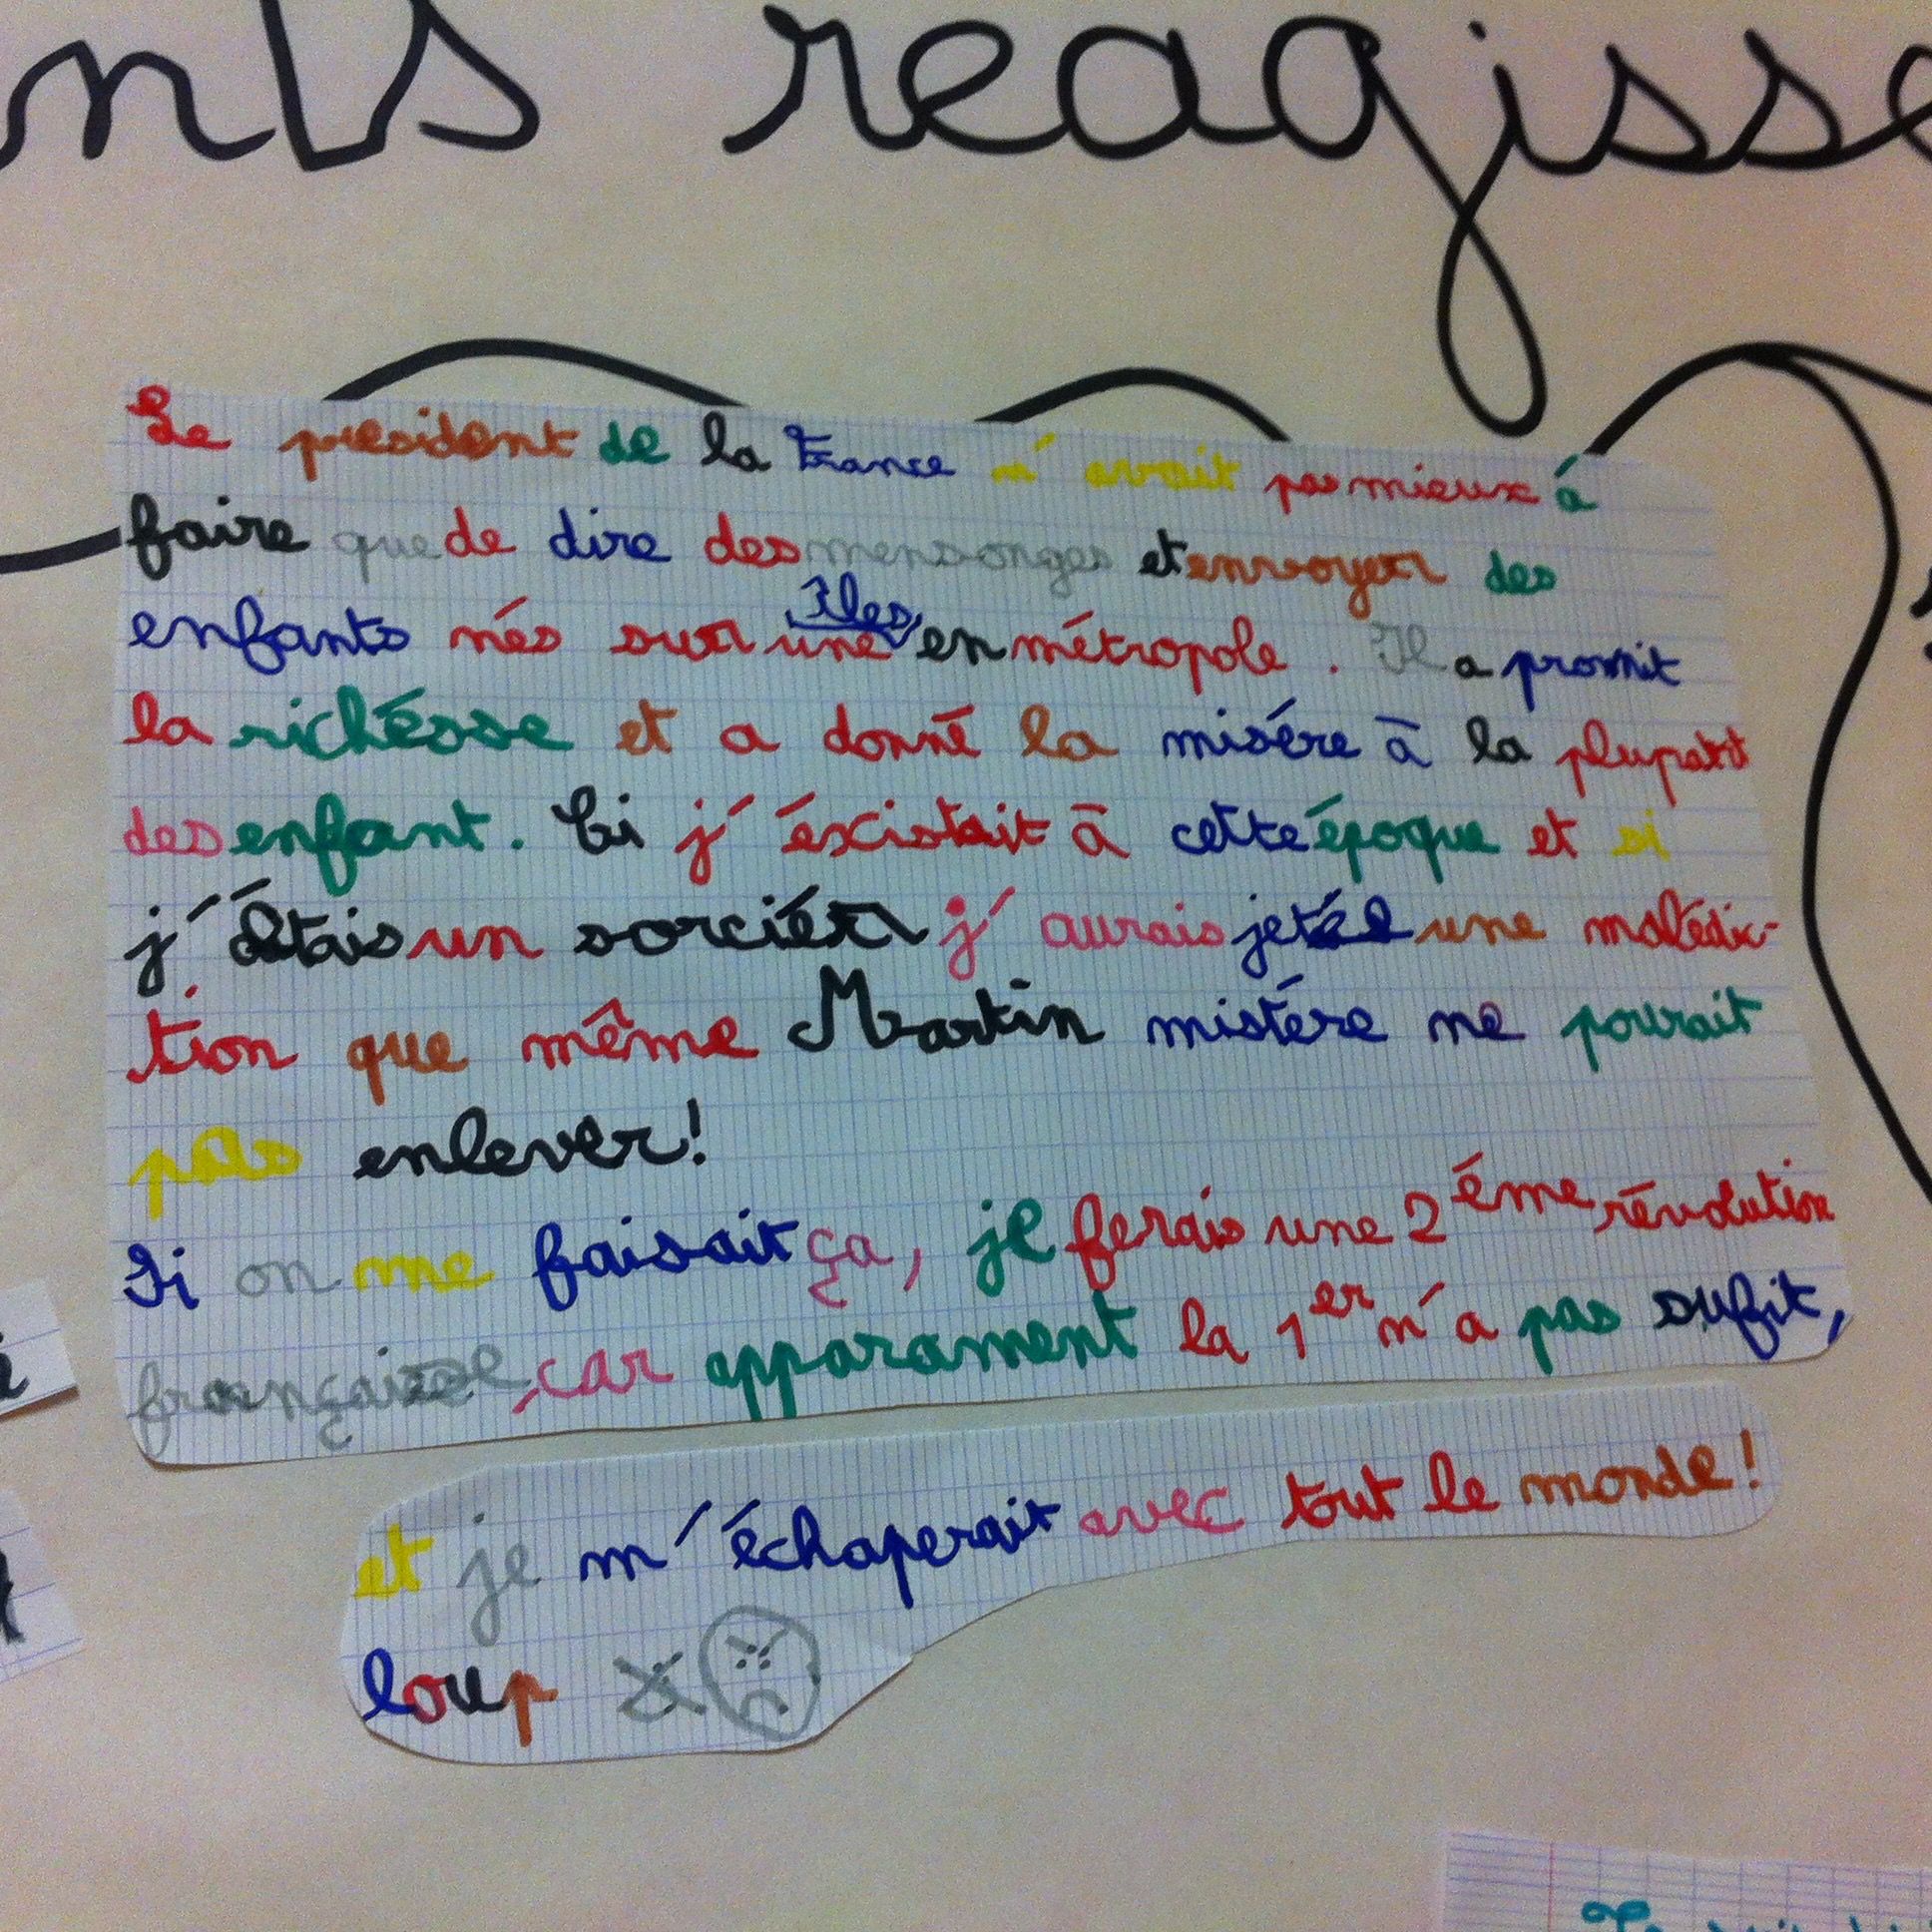 nts reagisse
Le président de la France n'avait pas mieux à
faire que de dire des mensonges et envoyer des
enfants nés sur une Iles en métropole. Il a promit
la richésse et a donné la misére à la plupart
des enfant. Si j'éxistait à cette époque et si
j'étais un sorciér j'aurais jeté une malédic-
tion que même Martin mistére ne pourait
pas enlever!
Si on me faisait ça, je ferais une 2ème révolution
française, car apparament la 1er n'a pas sufit,
et je m'échaperait avec tout le monde!
loup